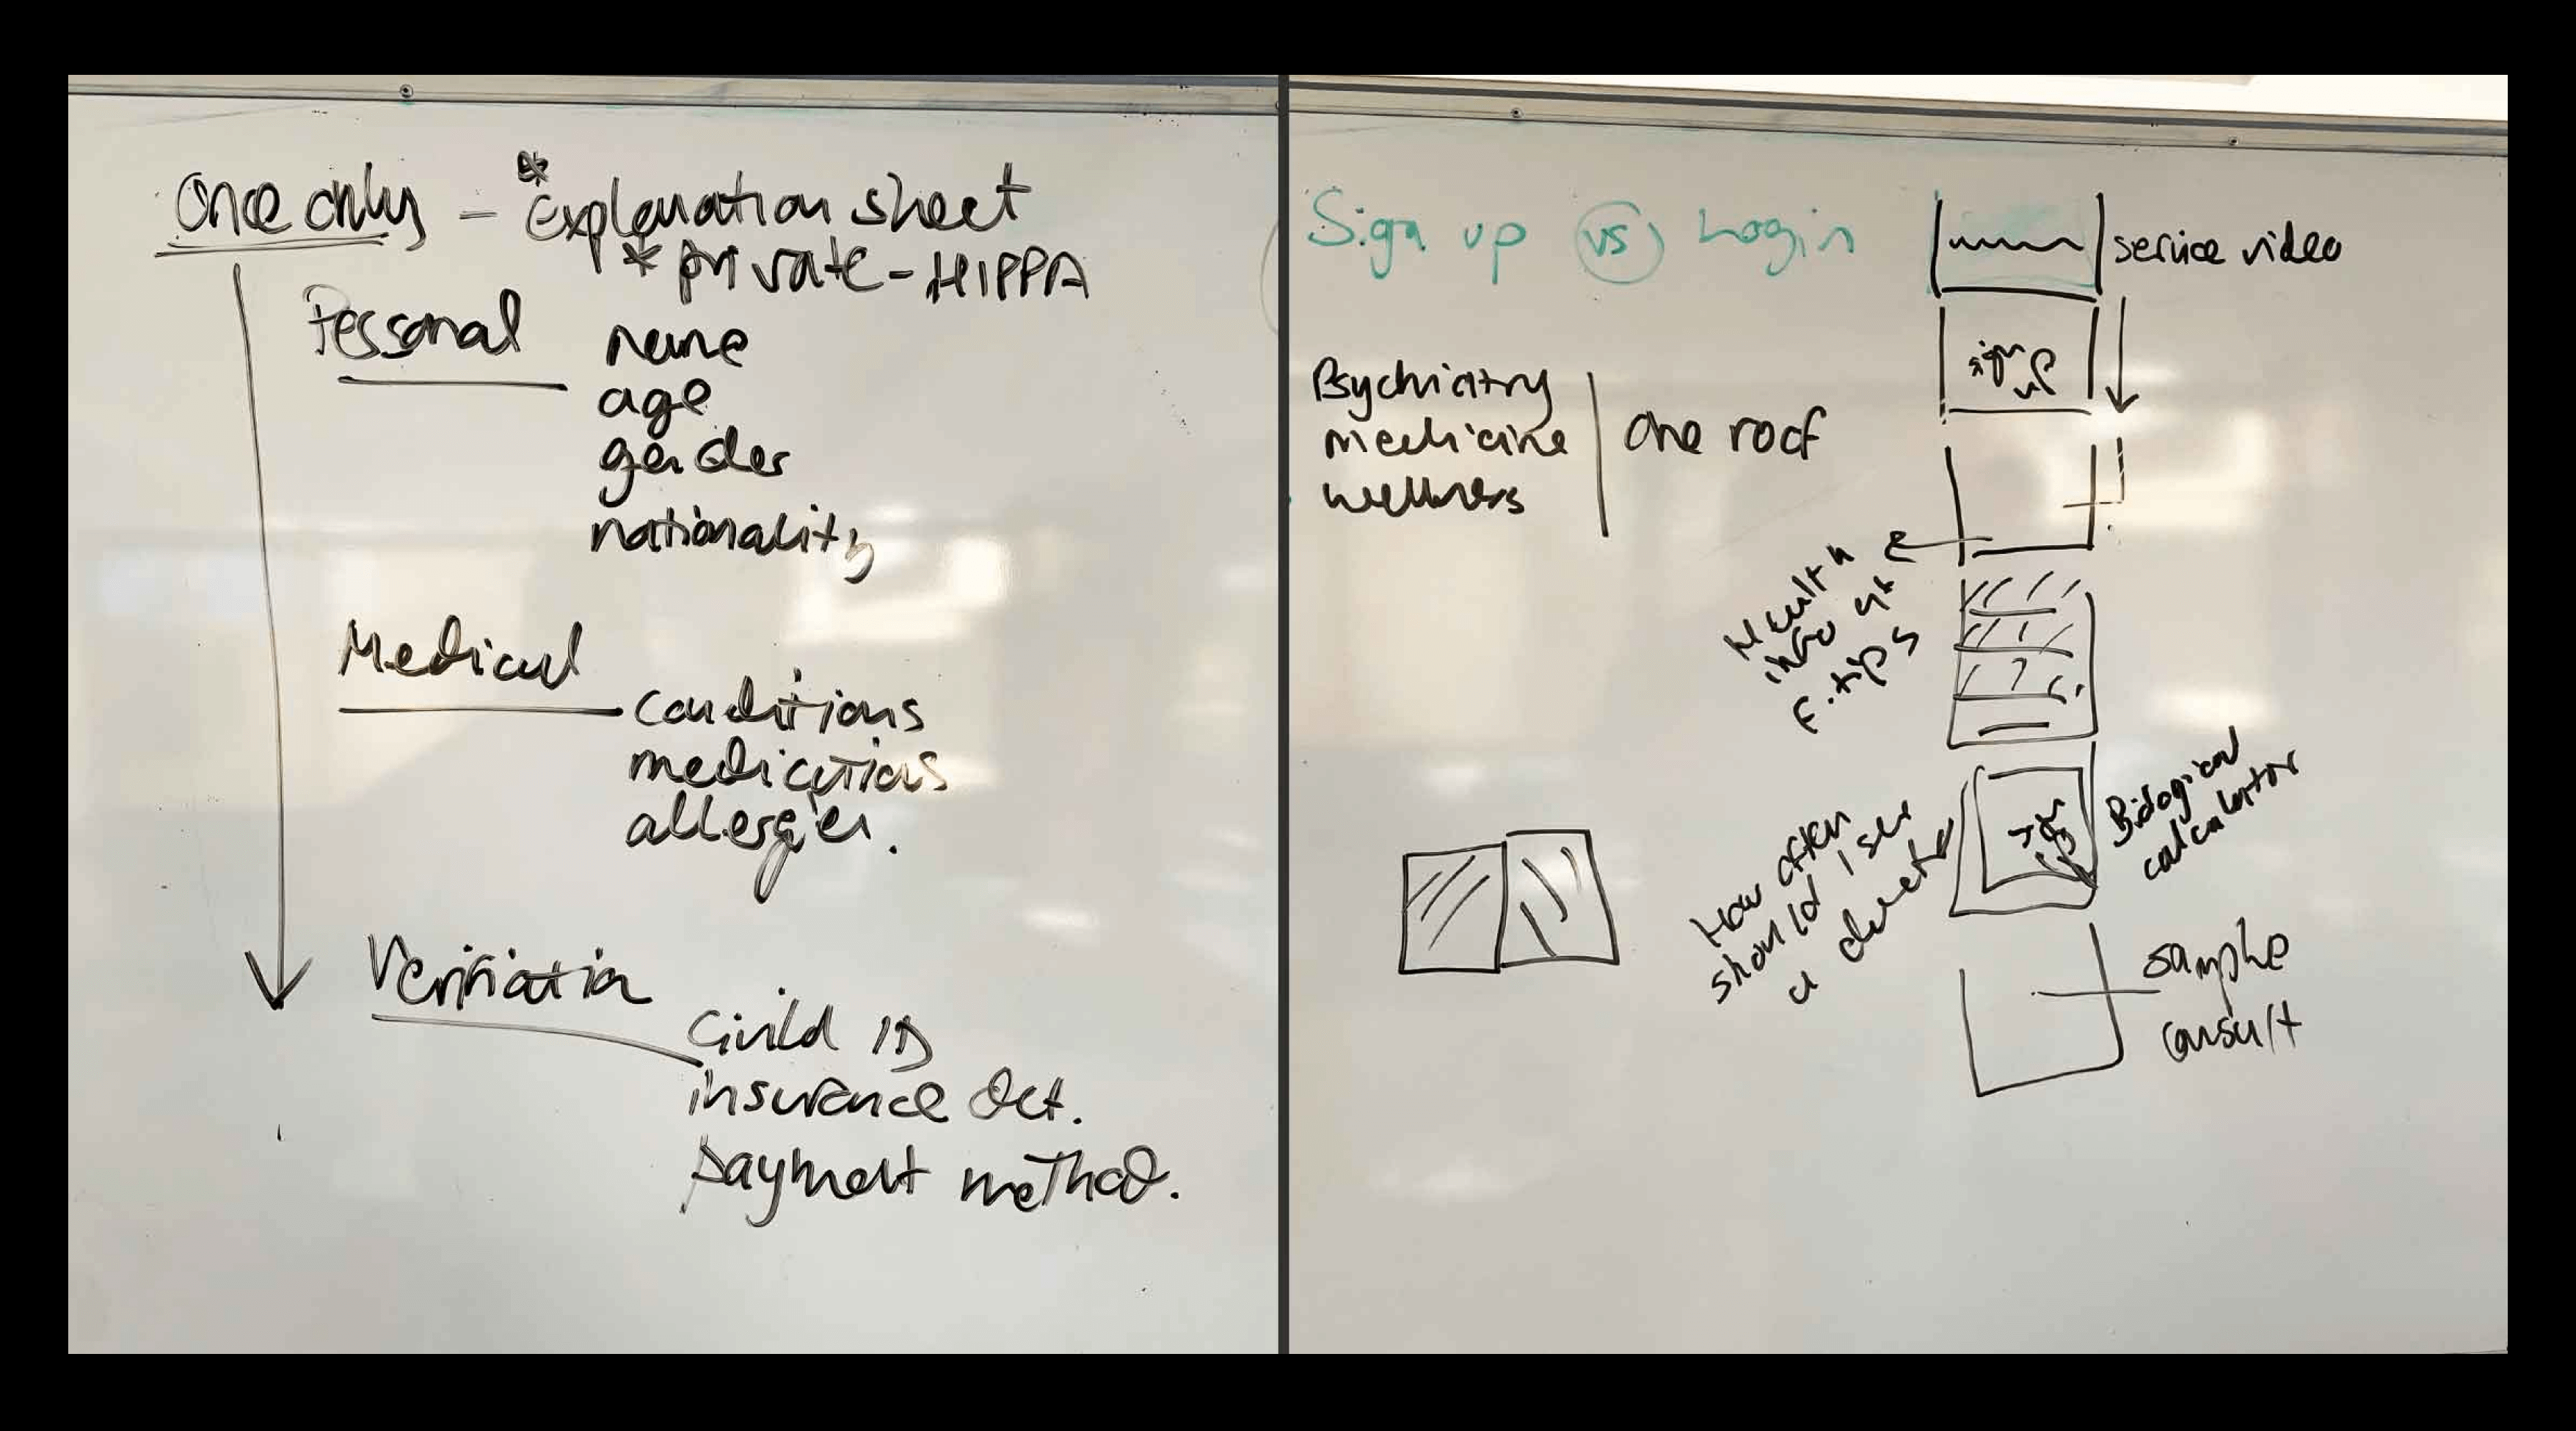 Once only - * Explanation sheet
* private - HIPPA
Personal
name
age
gender
nationality
Medical
conditions
medications
allergies.
insurance det.
payment method.
Sign up vs Login
service video
sign
up
Psychiatry
medicine
wellness
one roof
Health
info
tips
How often
should I see
a doctor
Biological
calculator
sample
consult